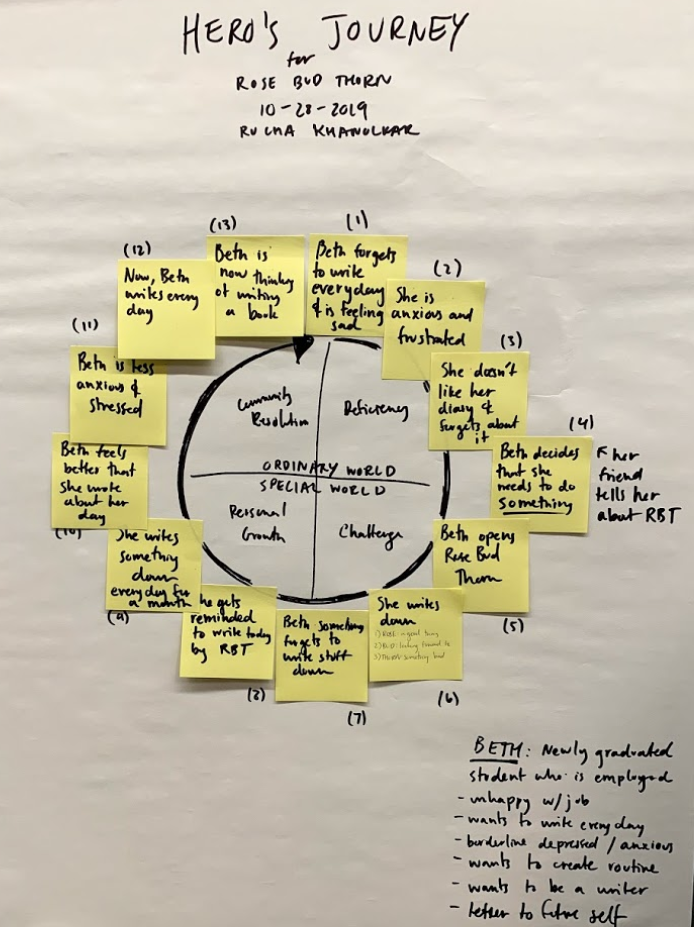 HERO'S JOURNEY
for
ROSE BUD THORN
10-28-2019
RUCHA KHANOLKAR
(1)
Beth forgets
to write
everyday
& is feeling
sad
(2)
She is
anxious and
frustrated
(3)
She doesn't
like her
diary &
forgets about
it
(4)
Beth decides
that she
needs to do
something
her
friend
tells her
about RBT
Beth opens
Rose Bud
Thorn
(5)
She writes
down
1) ROSE: a good thing
2) BUD: looking forward to
3) THORN: something bad
(6)
Beth something
forgets to
write stuff
down
(7)
he gets
reminded
to write today
by RBT
She writes
something
down
everyday for
a month
(9)
Beth feels
better that
she wrote
about her
day
(10)
(11)
Beth is less
anxious &
stressed
(12)
Now, Beth
writes every
day
(13)
Beth is
now thinking
of writing
a book
Community
Resolution
Deficiency
ORDINARY WORLD
SPECIAL WORLD
Personal
Growth
Challenge
BETH: Newly graduated
student who is employed
- unhappy w/ job
- wants to write everyday
- borderline depressed / anxious
- wants to create routine
- wants to be a writer
- letter to future self